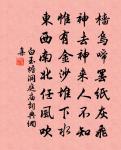 檣烏啼罷紙灰飛
神去神來人不知
惟有金沙堆下水
東西南北任風吹
白玉蟾洞庭廟詞典網
集